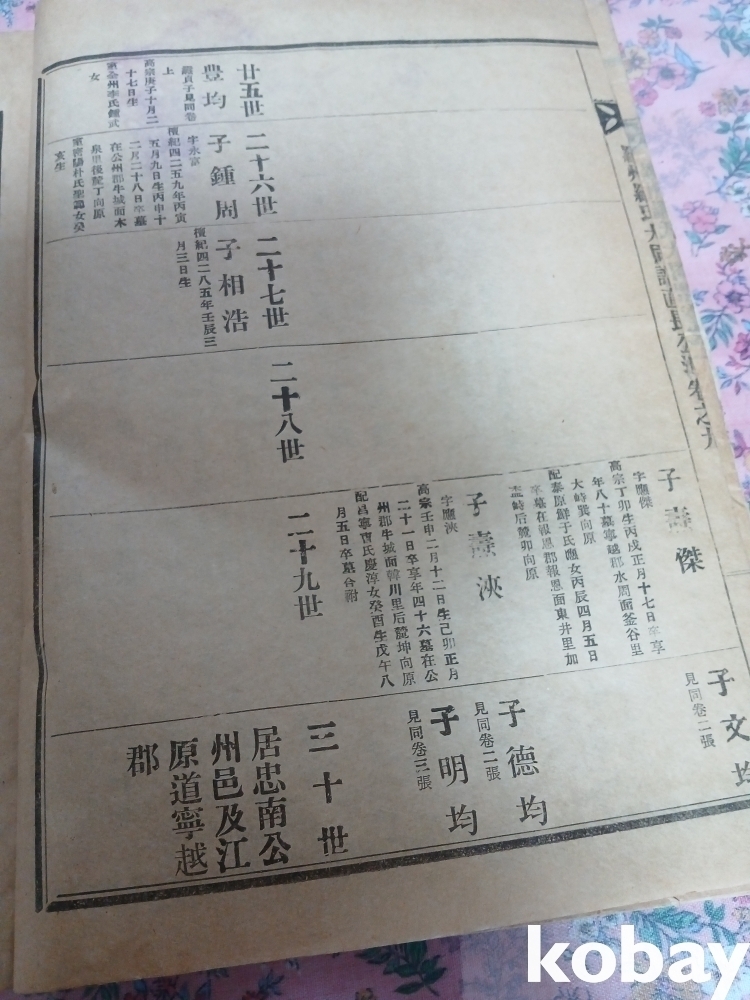 卷之九
子 傑
字應傑
高宗丁卯生丙戌正月十七日卒享
年八十墓寧越郡水周面釜谷里
大峙巽向原
配泰原鮮于氏 女丙辰四月五日
卒墓在報恩郡報恩面東井里加
峙后麓卯向原
子文均
見同卷二張
子 浹
字應浹
高宗壬申二月十二日生己卯正月
二十一日卒享年四十六墓在公
州郡牛城面韓川里后麓坤向原
配昌寧曺氏慶淳女癸酉生戊午八
月五日卒墓合祔
子德均
見同卷二張
子明均
見同卷三張
廿五世
二十六世
二十七世
二十八世
二十九世
三十世
豊均
貞子見同卷
上
高宗庚子十月二
十七日生
配全州李氏鍾武
女
子鍾周
字永富
檀紀四二五九年丙寅
五月九日生丙申十
二月二十八日卒墓
在公州郡牛城面木
泉里後麓丁向原
配密陽朴氏聖錦女癸
亥生
子相浩
檀紀四二八五年壬辰三
月三日生
居忠南公
州邑及江
原道寧越
郡
kobay